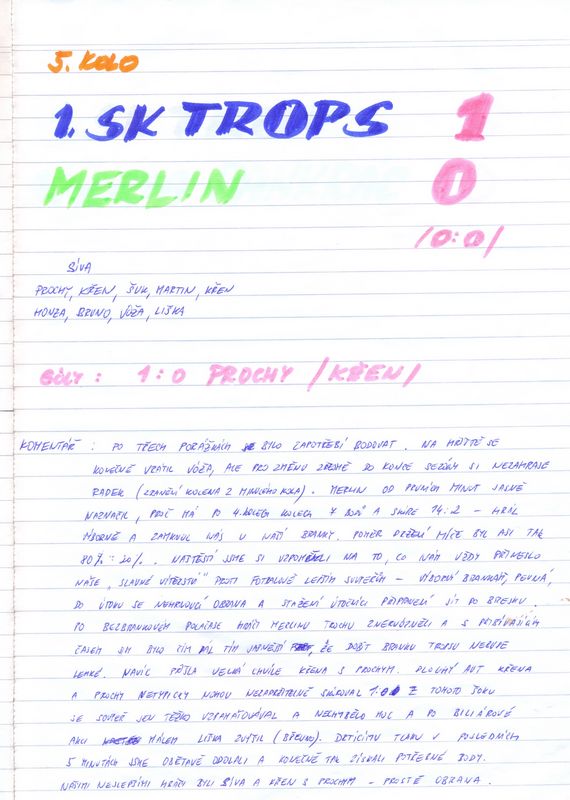 5. KOLO
1. SK TROPS 1
MERLIN 0
/0:0/
SÍVA
PROCHY, KŘEN, ŠUK, MARTIN, KŘEN
HONZA, BRUNO, VÓŽA, LIŠKA
GÓLY : 1:0 PROCHY /KŘEN/
KOMENTÁŘ : PO TŘECH PORÁŽKÁCH BYLO ZAPOTŘEBÍ BODOVAT. NA HŘIŠTĚ SE
KONEČNĚ VRÁTIL VÓŽA, ALE PRO ZMĚNU ZŘEJMĚ DO KONCE SEZÓNY SI NEZAHRAJE
RADEK (ZRANĚNÍ KOLENA Z MINULÉHO KOLA). MERLIN OD PRVNÍCH MINUT JASNĚ
NAZNAČIL, PROČ MÁ PO 4. KOLECH 7 BODŮ A SKÓRE 14:2 - HRÁL
VÝBORNĚ A ZAMKNUL NÁS U NAŠÍ BRANKY. POMĚR DRŽENÍ MÍČE BYL ASI TAK
80% : 20%. NAŠTĚSTÍ JSME SI VZPOMNĚLI NA TO, CO NÁM VŽDY PŘINESLO
NAŠE „SLAVNÉ VÍTĚZSTVÍ" PROTI FOTBALOVĚ LEPŠÍM SOUPEŘŮM - VÝBORNÝ BRANKÁŘ, PEVNÁ,
DO ÚTOKU SE NEHRNOUCÍ OBRANA A STAŽENÍ ÚTOČNÍCI PŘIPRAVENÍ JÍT DO BREJKU.
PO BEZBRANKOVÉM POLOČASE HRÁČI MERLINU TROCHU ZNERVÓZNĚLI A S PŘIBÝVAJÍCÍM
ČASEM JIM BYLO ČÍM DÁL TÍM JASNĚJŠÍ, ŽE DOBÝT BRANKU TROPSU NEBUDE
LEHKÉ. NAVÍC PŘIŠLA VELKÁ CHVÍLE KŘENA S PROCHYM. DLOUHÝ AUT KŘENA
A PROCHY NETYPICKY NOHOU NEZADRŽITELNĚ SKÓROVAL 1:0! Z TOHOTO ŠOKU
SE SOUPEŘ JEN TĚŽKO VZPAMATOVÁVAL A NECHYBĚLO MOC A PO BILIÁROVÉ
AKCI MÁLEM LIŠKA ZVÝŠIL (BŘEVNO). DRTIVÉMU TLAKU V POSLEDNÍCH
5 MINUTÁCH JSME OBĚTAVĚ ODOLALI A KONEČNĚ TAK ZÍSKALI POTŘEBNÉ BODY.
NAŠIMI NEJLEPŠÍMI HRÁČI BYLI SÍVA A KŘEN S PROCHYM - PROSTĚ OBRANA.